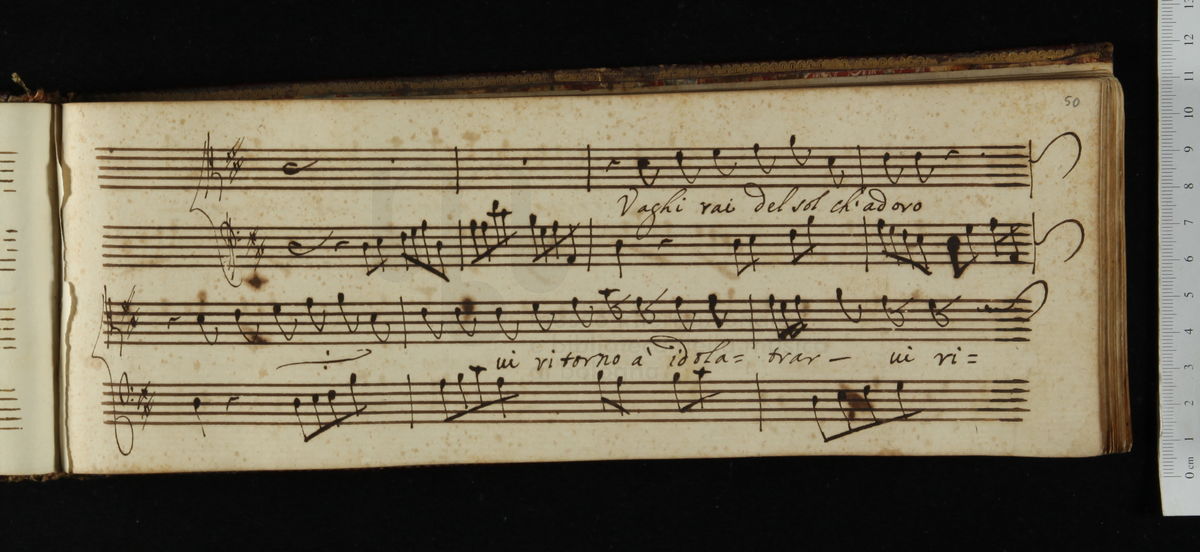 50
Vaghi rai del sol ch'adoro
ui ritorno a' idola= trar — ui ri=
13
12
11
10
9
8
7
6
5
4
3
2
1
0 cm